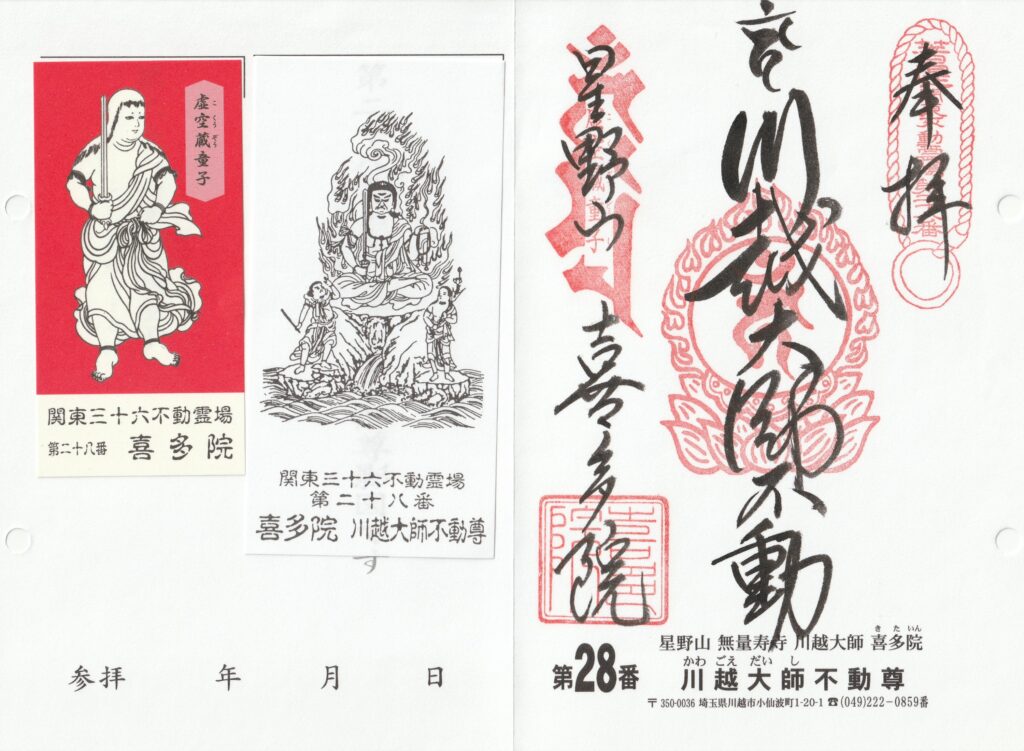 虚空蔵童子
こくうぞう
関東三十六不動霊場
第二十八番 喜多院
関東三十六不動霊場
第二十八番
喜多院 川越大師不動尊
参拝 年 月 日
奉拝
川越大師不動
星野山 喜多院
星野山 無量寿寺 川越大師 喜多院
きたいん
第28番 川越大師不動尊
かわごえだいし
〒350-0036 埼玉県川越市小仙波町1-20-1 ☎(049)222-0859番